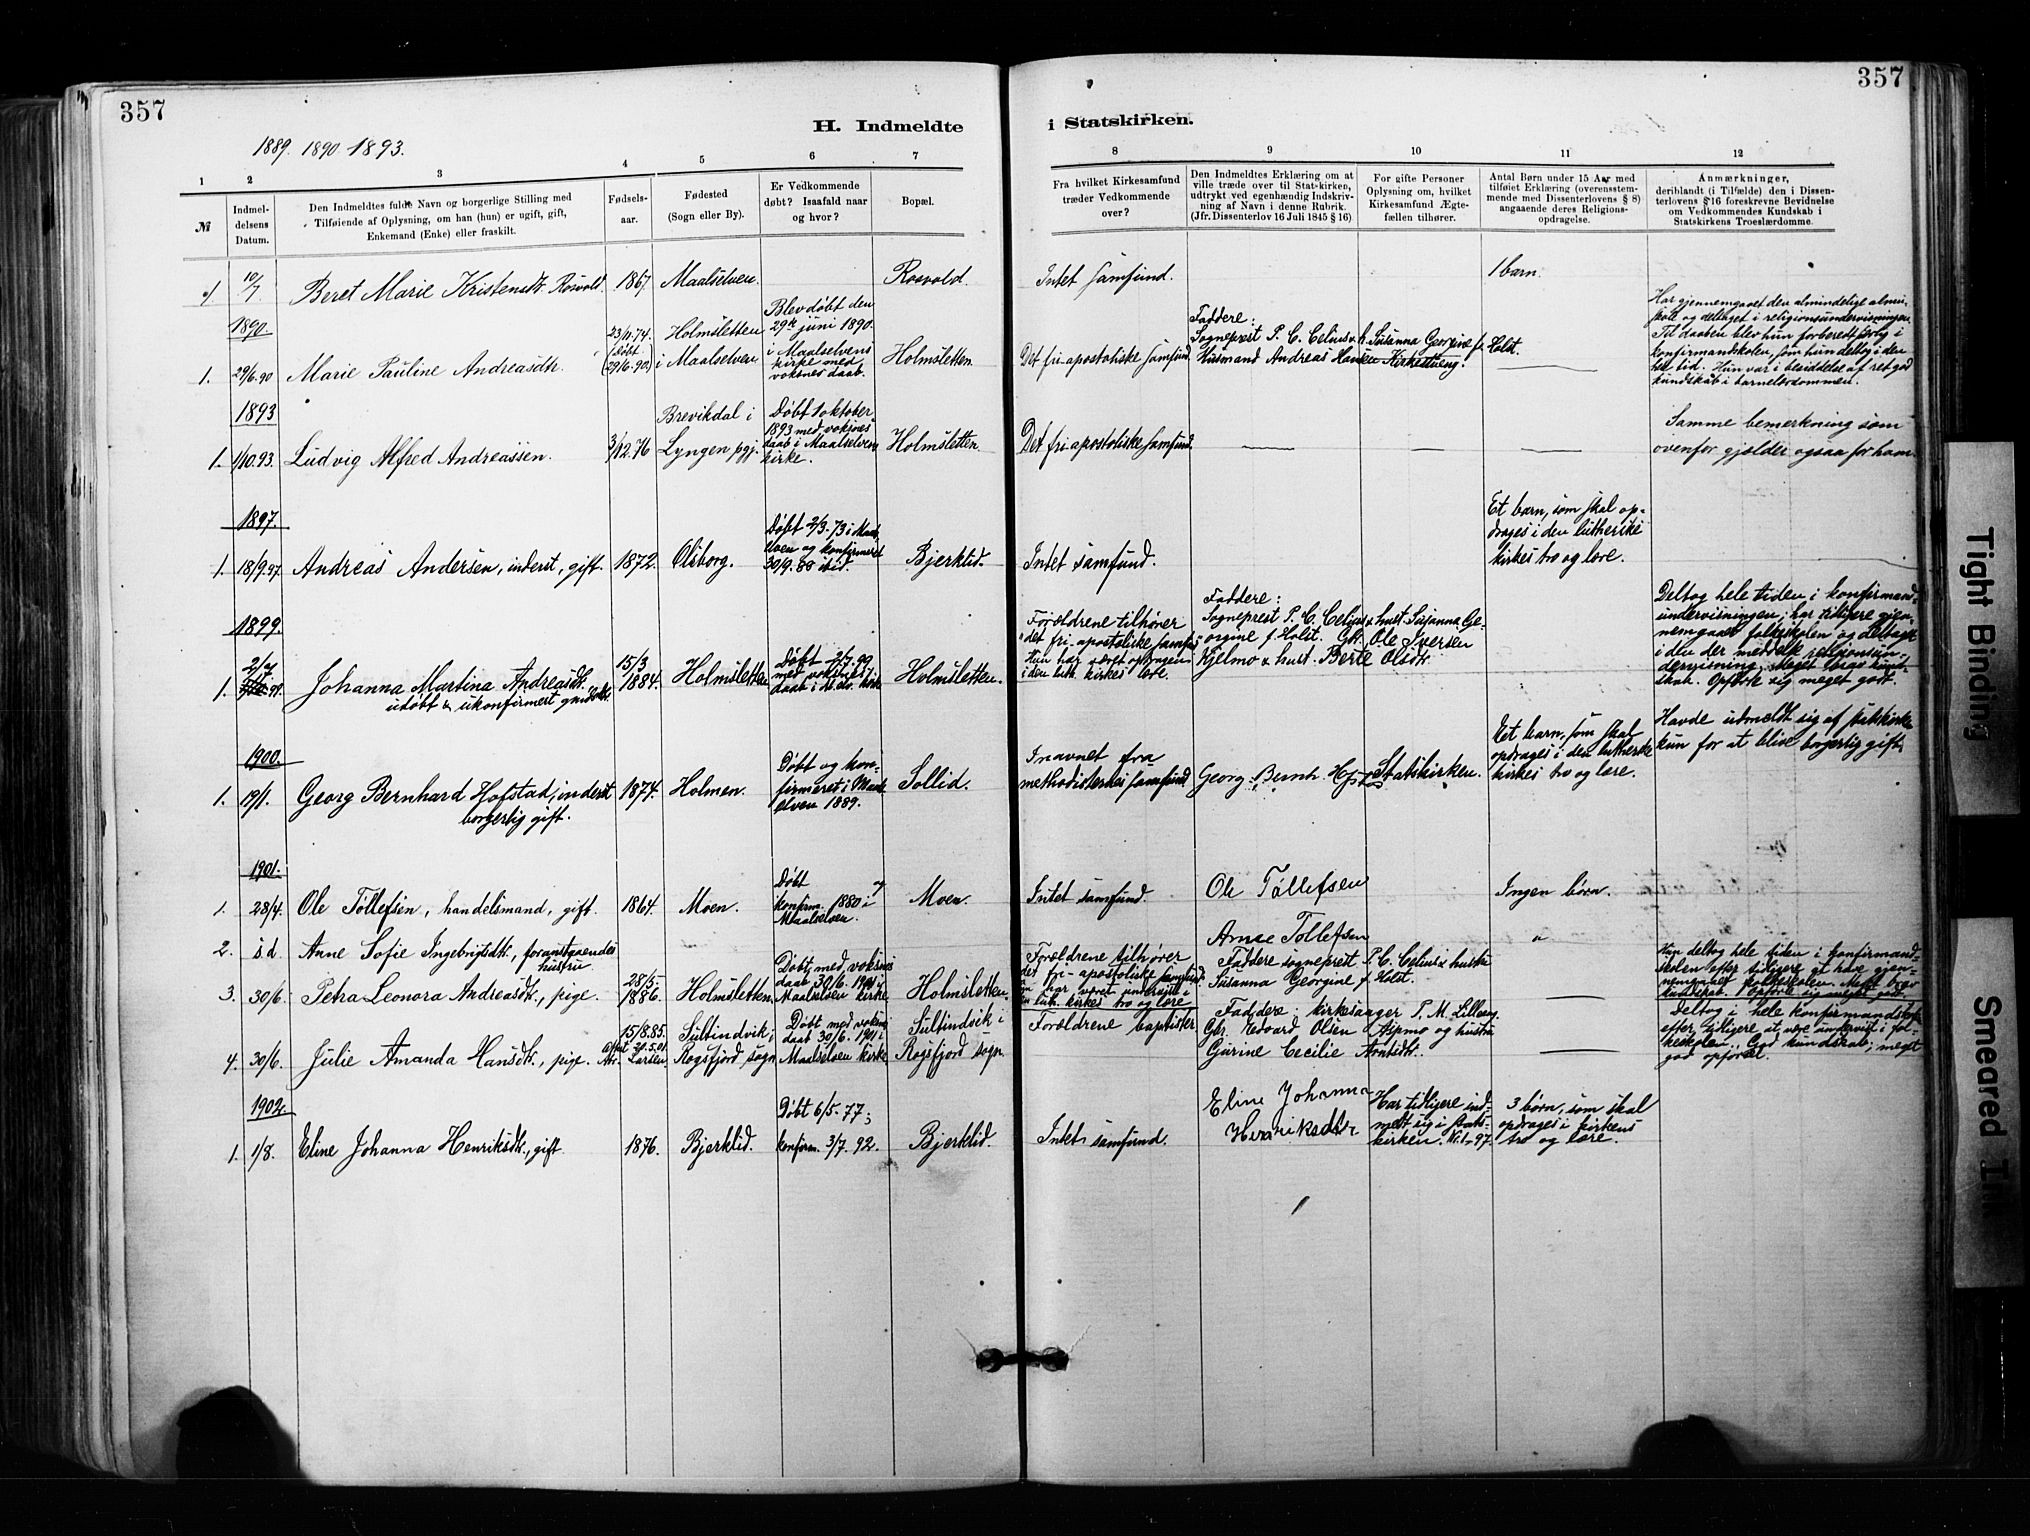 357
357
H. Indmeldte
i Statskirken.
1889. 1890. 1893.
1 2 3 4 5 6 7
8 9 10 11 12
№
Indmel-
delsens
Datum.
Den Indmeldtes fulde Navn og borgerlige Stilling med
Tilføiende af Oplysning, om han (hun) er ugift, gift,
Enkemand (Enke) eller fraskilt.
Fødsels-
aar.
Fødested
(Sogn eller By).
Er Vedkommende
døbt? Isaafald naar
og hvor?
Bopæl.
Fra hvilket Kirkesamfund
træder Vedkommende
over?
Den Indmeldtes Erklæring om at
ville træde over til Stat-kirken,
udtrykt ved egenhændig Indskriv-
ning af Navn i denne Rubrik.
(Jfr. Dissenterlov 16 Juli 1845 § 16)
For gifte Personer
Oplysning om, hvilket
Kirkesamfund Ægte-
fællen tilhører.
Antal Børn under 15 Aar med
tilføiet Erklæring (overensstem-
mende med Dissenterlovens § 8)
angaaende deres Religions-
opdragelse.
Anmærkninger,
deriblandt (i Tilfælde) den i Dissen-
terlovens § 16 foreskrevne Bevidnelse
om Vedkommendes Kundskab i
Statskirkens Troeslærdomme.
1 10/7 Beret Marie Kristensdtr. Rosvold. 1867 Maalselven. Rosvold Intet samfund. 1 barn.
1890.
1. 29/6.90 Marie Pauline Andreasdtr.
23/11.74.
(døbt
29/6.90)
Holmsletten
i Maalselven
Blev døbt den
29de juni 1890.
i Maalselvens
kirke med
voksnes daab.
Holmsletten.
Det fri-apostoliske samfund
Faddere:
Sogneprest P. C. Celius & h. Susanna Georgine f. Holst.
Husmand Andreas Hansen Kirkesveng.
Har gjennemgaaet den almindelige almu-
skole og deltaget i religionsundervisningen.
Til daaben blev hun forberedt særlig i
konfirmandskolen, som hun deltog i den
hele tid. Hun var i besiddelse af ret god
kundskab i barnelærdommen.
1893
1. 1/10.93. Ludvig Alfred Andreassen. 3/12.76
Brevikdal i
Lyngen pgj.
Døbt 1 oktober
1893 med voksnes
daab i Maalselvens
kirke.
Holmsletten.
Det fri-apostoliske samfund.
Samme bemerkning som
ovenfor gjælder ogsaa for ham.
1897.
1. 18/9.97. Andreas Andersen, inderst, gift. 1872. Olsborg.
Døbt 2/3.73 i Maal-
selven og konfirmeret
30/9.88 ibid.
Bjerklid. Intet samfund.
Et barn, som skal op-
drages i den lutherske
kirkes tro og lære.
1899.
1. 2/7 Johanna Martina Andreasdtr.
udøbt & ukonfirmert
15/3
1884.
Holmsletten
Døbt 2/7.99
med voksnes
daab i kirke
Holmsletten.
Forældrene tilhører
det fri-apostoliske samfu.
Hun har været opdragen
i den luth. kirkes lære.
Faddere:
Sogneprest P. C. Celius & hust. Susanna Ge-
orgine f. Holst. Gbr. Ole Iversen
Kjelmo & hust. Berte Olsdtr.
Deltog hele tiden i konfirmand-
undervisningen; har tidligere gjen-
nemgaaet folkeskolen og deltaget
i den der meddelte religionsun-
dervisning. Meget brav kund-
skab. Opførte sig meget godt.
1900.
1. 19/1. Georg Bernhard Hofstad, inderst
borgerlig gift.
1874. Holmen.
Døbt og kon-
firmeret i Maals-
elven 1889.
Sollid.
I navnet fra
methodisternes samfund
Georg Bernh Hofst
Statskirken.
Et barn, som skal
opdrages i den lutherske
kirkes tro og lære.
Havde udmeldt sig af statskirke
kun for at blive borgerlig gift.
1901.
1. 28/4. Ole Tollefsen, handelsmand, gift. 1864. Moen.
Døbt og
konfirm. 1880 i
Maalselven.
Moen. Intet samfund. Ole Tøllefsen Ingen børn.
2. s.d. Anne Sofie Ingebrigtsdtr., foranstaaendes
hustru
Anne Tollefsen "
3. 30/6. Petra Leonora Andreasdtr., pige.
28/5.
1886.
Holmsletten.
Døbt med voksnes
daab 30/6. 1901 i
Maalselven kirke.
Holmsletten.
Forældrene tilhører
det fri-apostoliske samfund.
har været undervist i
den luth. kirkes tro og lære
Faddere sogneprest P. C. Celius & hustru
Susanna Georgine f. Holst.
Hun deltog hele tiden i konfirmand-
skolen efter tidligere at have gjen-
nemgaaet folkeskolen. Meget brav
kundskab. Opførte sig meget godt.
4. 30/6. Julie Amanda Hansdtr., pige.
15/8.85.
Sultindvik;
Rogsfjord sogn.
Døbt med voksnes
daab 30/6. 1901 i
Maalselven kirke.
Sultindvik i
Rogsfjord sogn.
Forældrene baptister
Faddere: kirkesanger P. M. Lilleng,
Gbr. Edvard Olsen og hustru
Gurine Cecilie Arntsdtr.
Deltog i hele konfirmandskole
efter tidligere at være undervist i fol-
keskolen. God kundskab; meget
god opførsel.
1902.
1. 1/8. Eline Johanna Henriksdtr., gift. 1876. Bjerklid.
Døbt 6/5.77;
konfirm. 3/7.92.
Bjerklid. Intet samfund.
Eline Johanna
Henriksdtr
Har tidligere ind-
meldt sig i stats-
kirken. № 1. 97.
3 børn, som skal
opdrages i kirkens
tro og lære.
Tight Binding
Smeared Ink